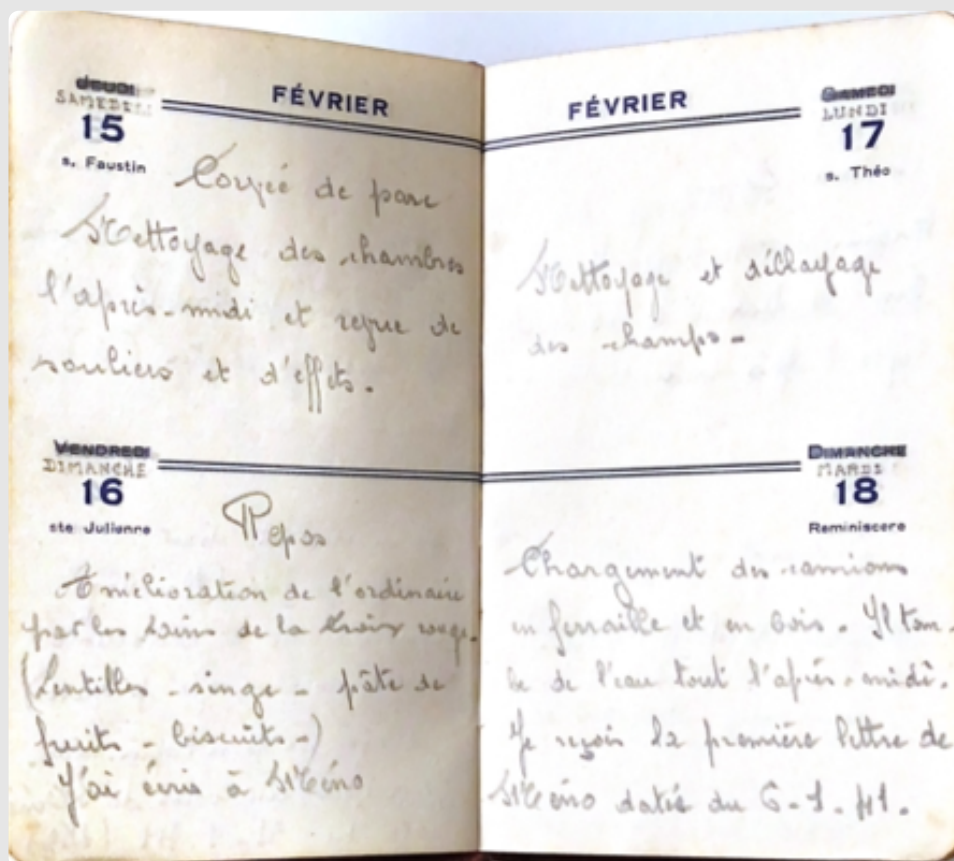 JEUDI
SAMEDI
15
s. Faustin
FÉVRIER
Corvée de parc
Nettoyage des chambres
l'après-midi et revue de
souliers et d'effets.
VENDREDI
DIMANCHE
16
ste Julienne
Repos
Amélioration de l'ordinaire
par les soins de la Croix rouge.
(Lentilles - singe - pâte de
fruits - biscuits -)
J'ai écris à Néno
FÉVRIER
SAMEDI
LUNDI
17
s. Théo
Nettoyage et déblayage
des champs -
DIMANCHE
MARDI
18
Reminiscere
Chargement des camions
en ferraille et en bois. Il tom-
be de l'eau tout l'après-midi.
Je reçois la première lettre de
Néno datée du 6-1-41.